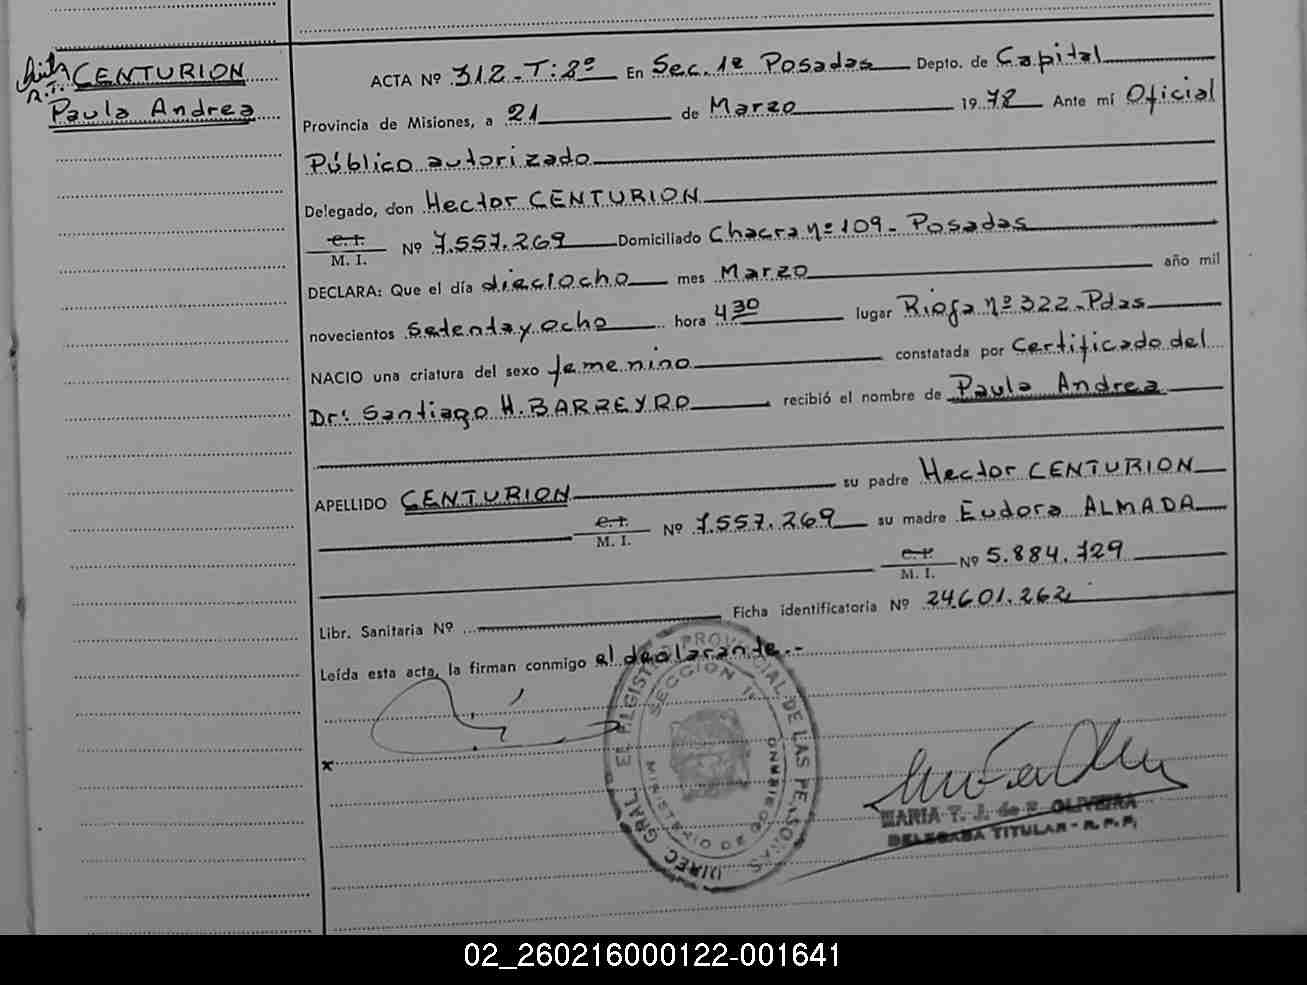 CENTURION
R.T.
Paula Andrea
ACTA Nº 312-T:8º En Sec. 1ª Posadas Depto. de Capital
Provincia de Misiones, a 21 de Marzo 1978 Ante mí Oficial
Público autorizado
Delegado, don Hector CENTURION
C.I.
M. I. Nº 7.557.269 Domiciliado Chacra nº 109 - Posadas
DECLARA: Que el día dieciocho mes Marzo año mil
novecientos Setenta y ocho hora 4 30 lugar Rioja nº 322-Pdas
NACIO una criatura del sexo femenino constatada por Certificado del
Dr: Santiago H. BARREYRO recibió el nombre de Paula Andrea
APELLIDO CENTURION su padre Hector CENTURION
C.I.
M. I. Nº 7.557.269 su madre Eudora ALMADA
C.I.
M. I. Nº 5.884.729
Libr. Sanitaria Nº Ficha identificatoria Nº 24.601.262
Leída esta acta, la firman conmigo el declarante.-
x
DIREC GRAL EL REGISTRO PROVINCIAL DE LAS PERSONAS
SECCION 1ª
MINISTERIO DE GOBIERNO
MARIA T. J. de F. OLIVEIRA
DELEGADA TITULAR - R. P. P.
02_260216000122-001641